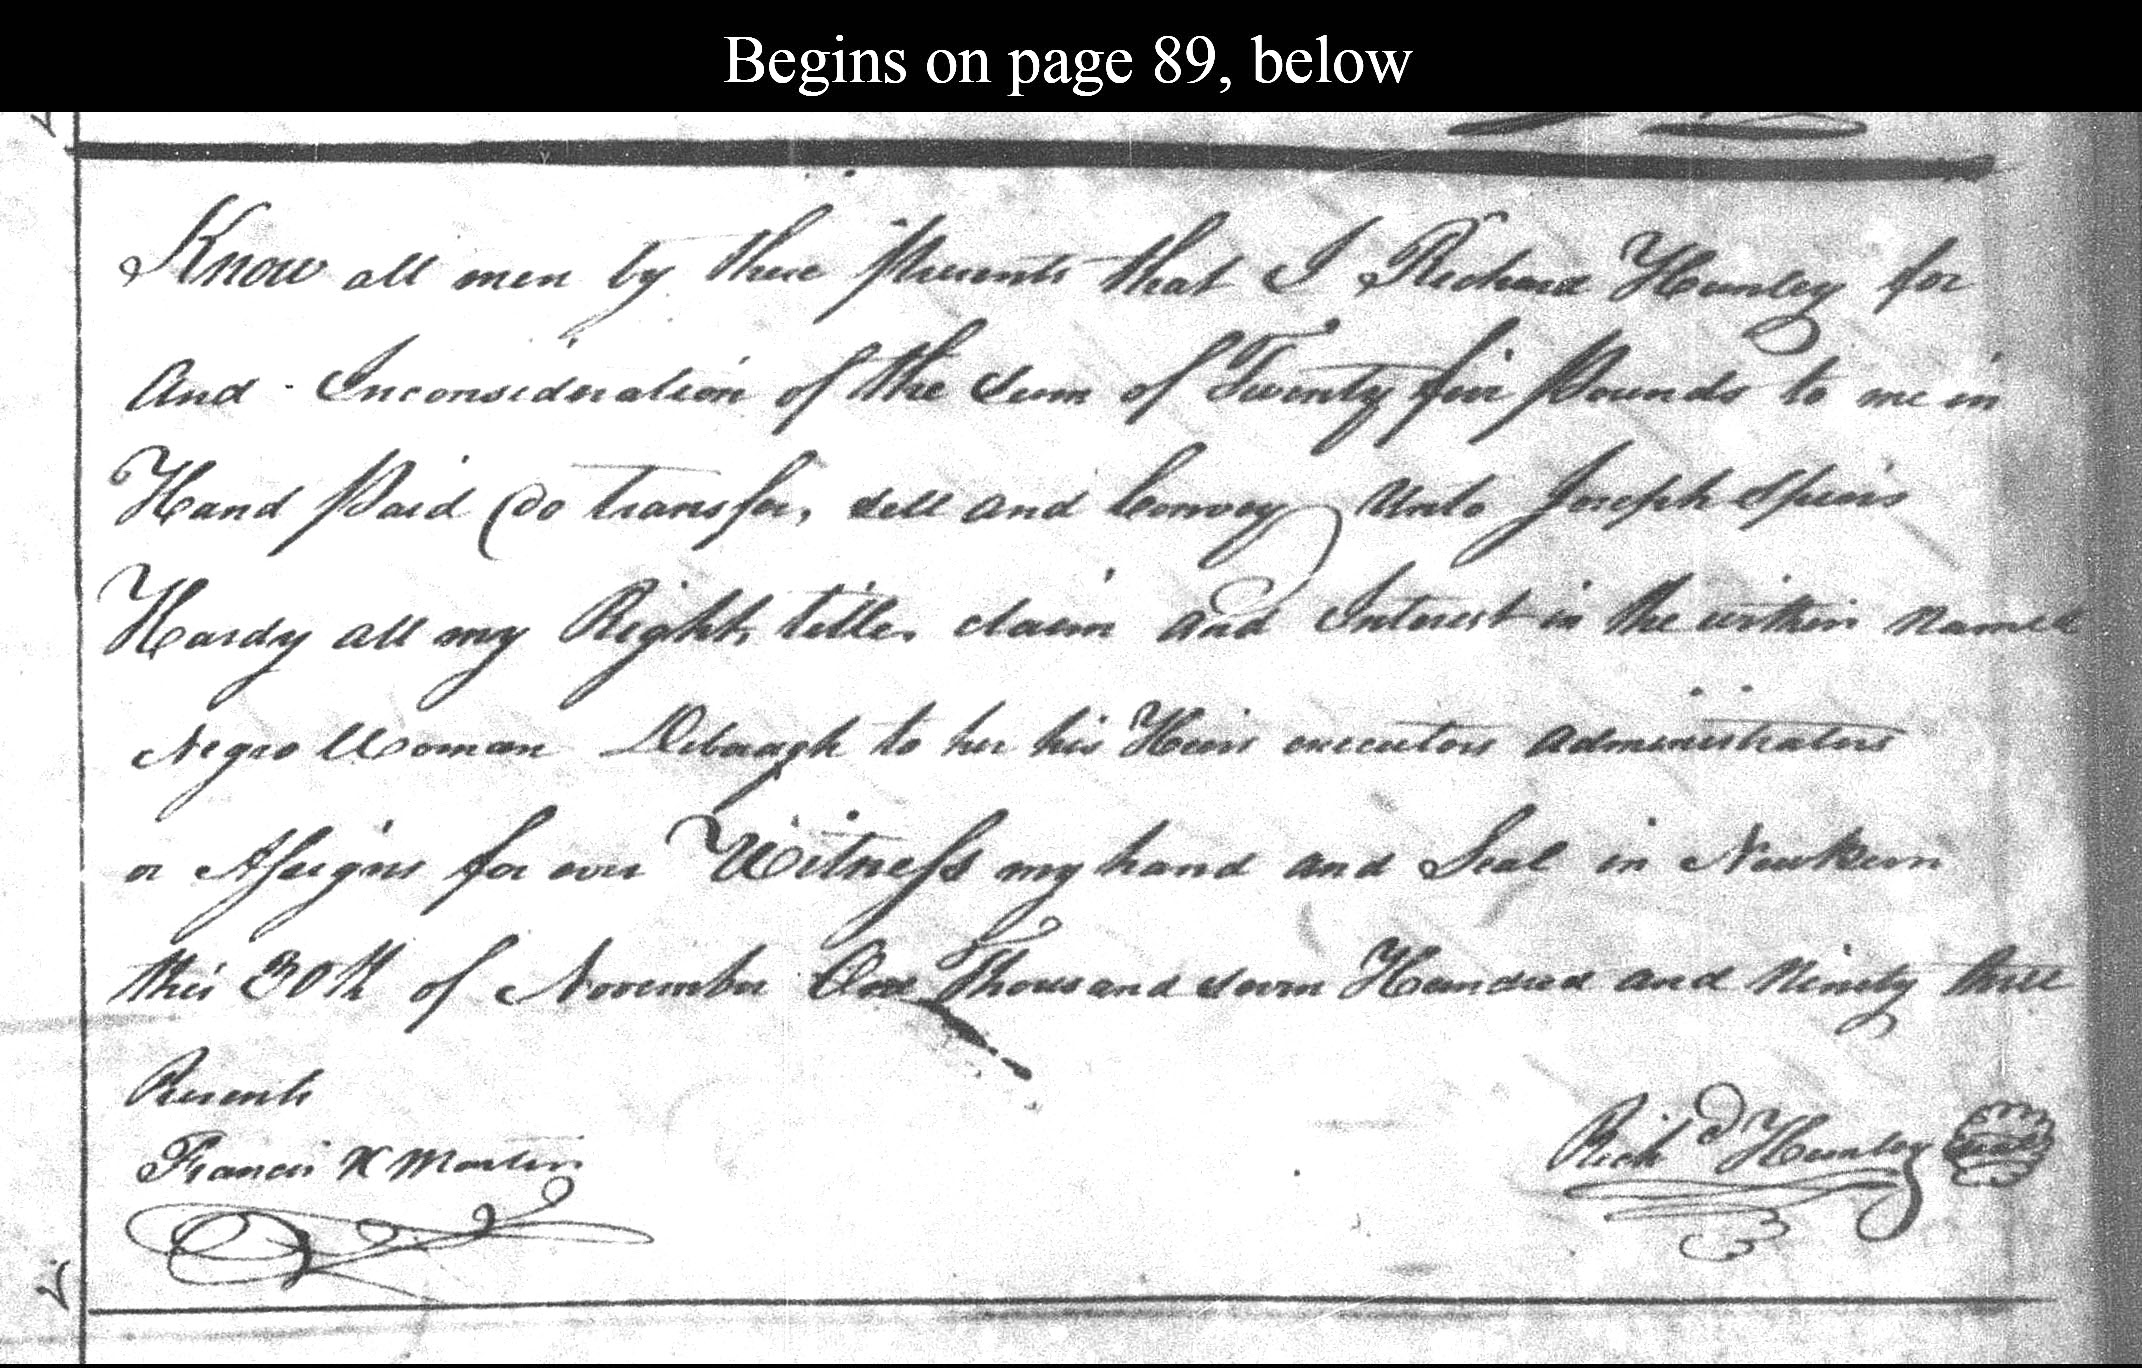 Begins on page 89, below
Know all men by these Presents that I Richard Hunley for
And Inconsideration of the Sum of Twenty five Pounds to me in
Hand Paid Do transfer, sell and Convey Unto Joseph Speirs
Hardy all my Right, title, claim and Interest in the within Named
Negro Woman Deboragh to her his Heirs executors administrators
or Assigns for ever Witness my hand and Seal in Newbern
this 30th of November One Thousand seven Hundred and Ninety three
Presents
Francis X Martin
Richd Hunley Seal